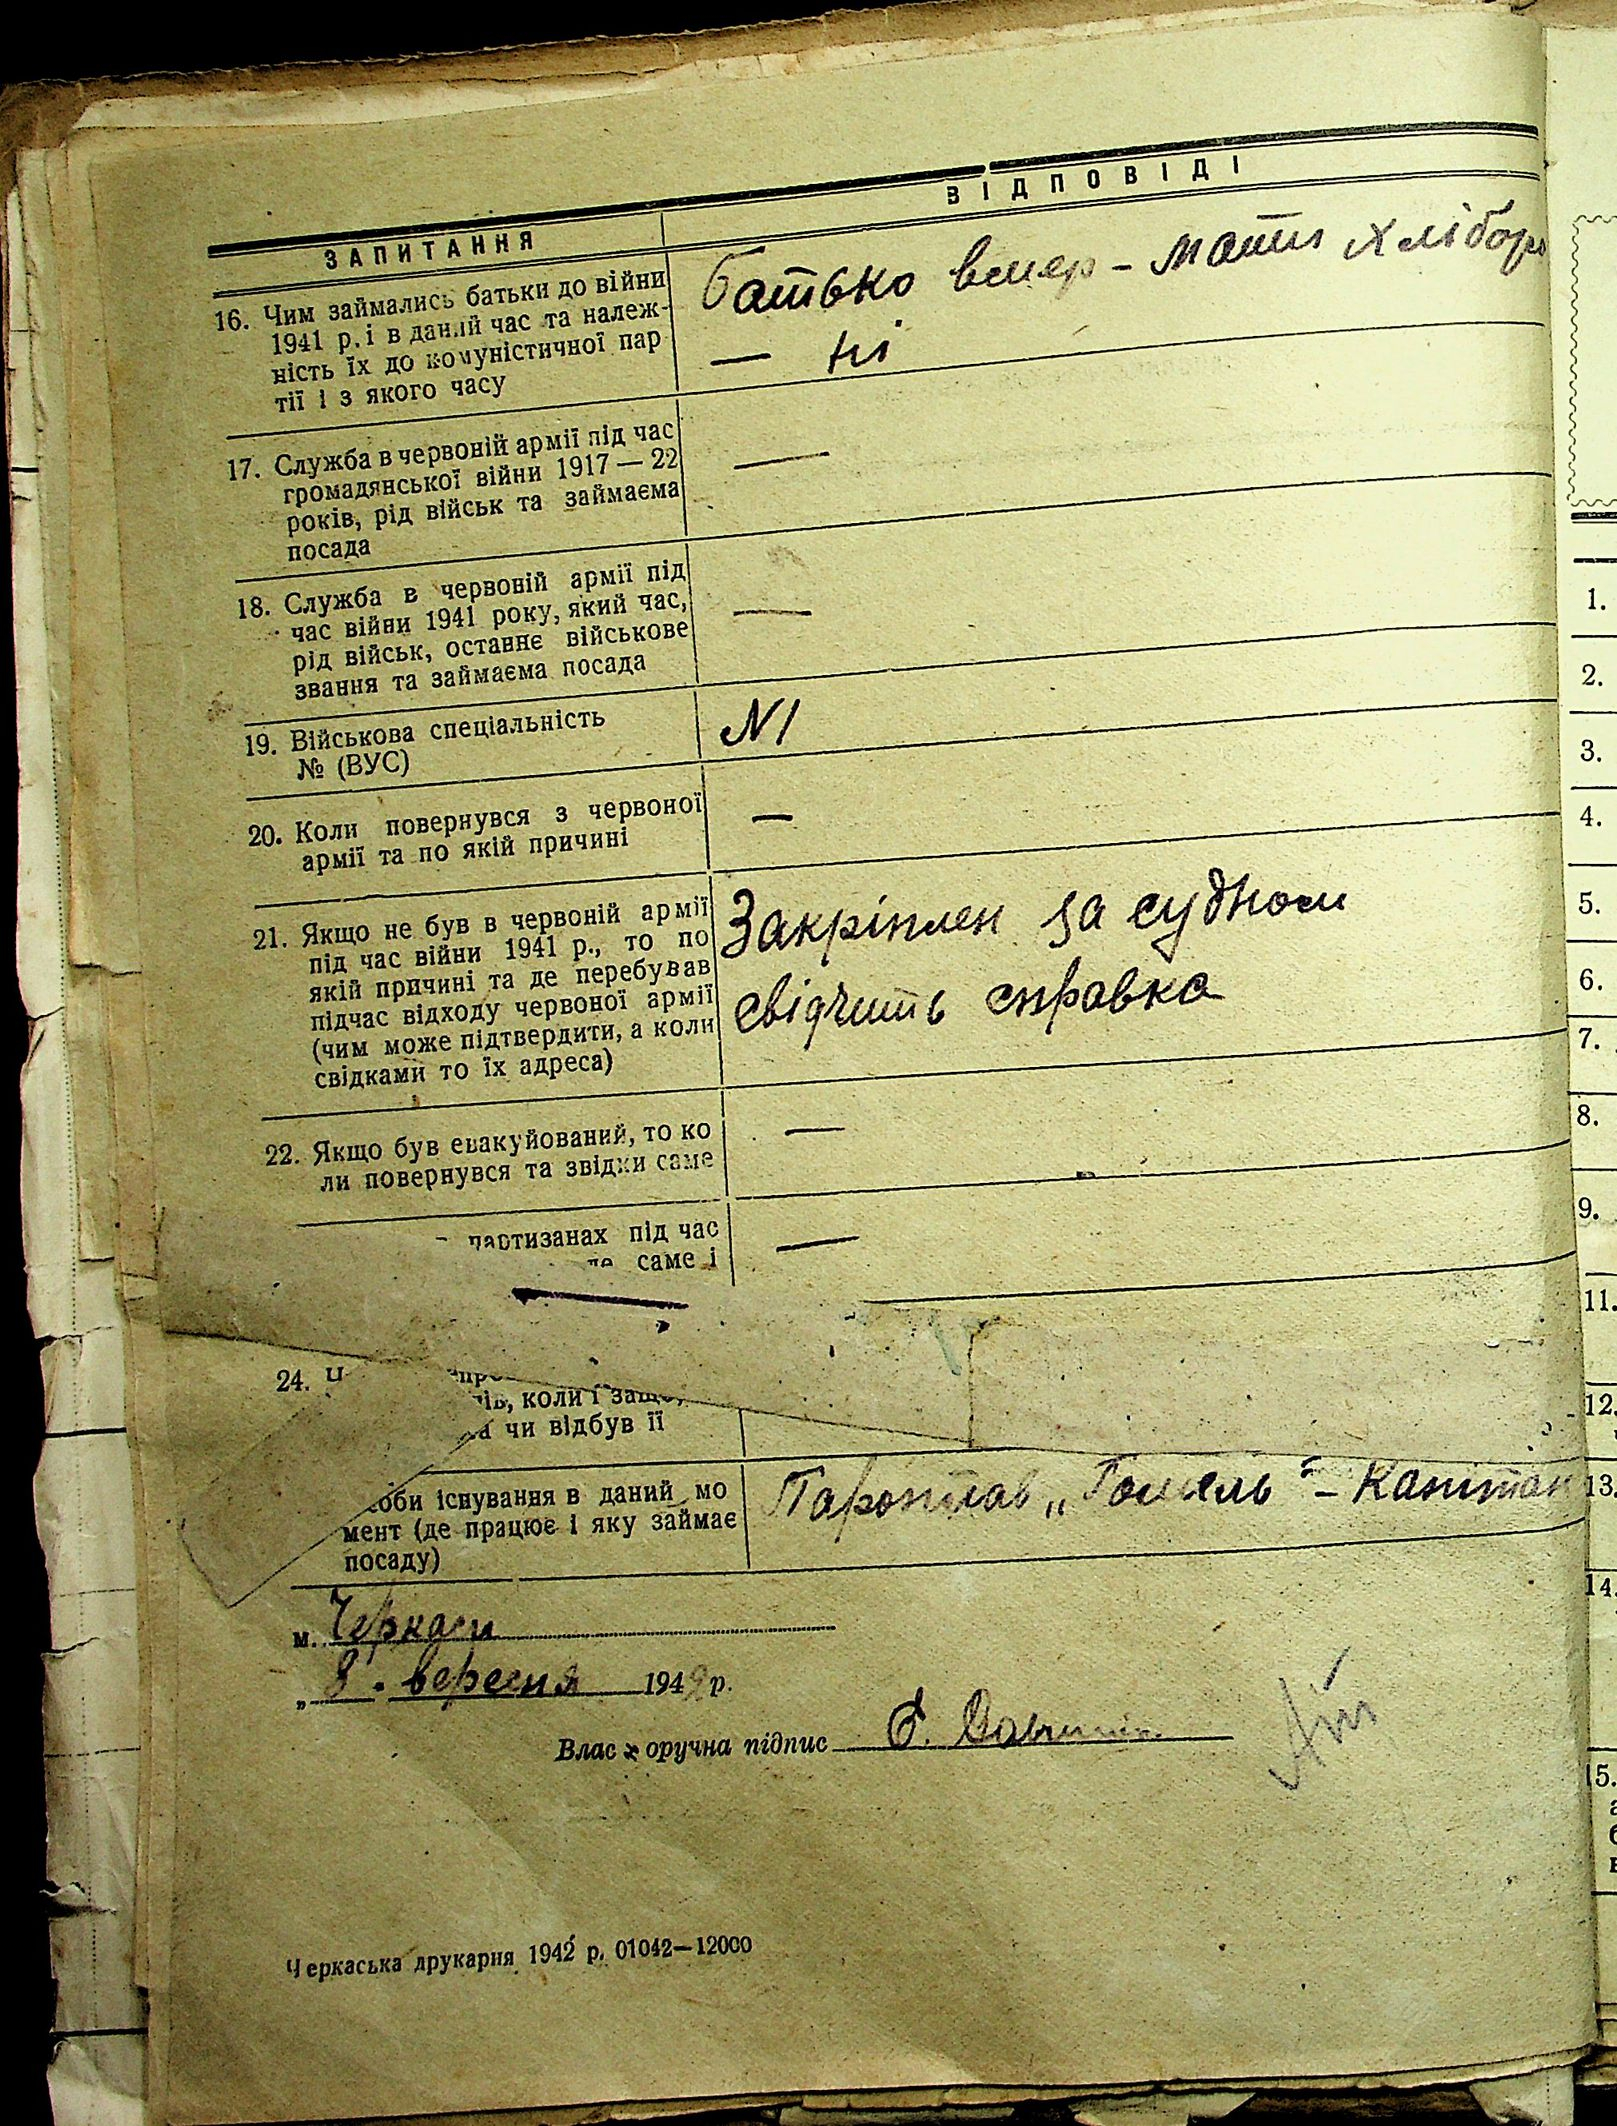 ЗАПИТАННЯ
ВІДПОВІДІ
16. Чим займались батьки до війни
1941 р. і в даний час та належ-
ність їх до комуністичної пар
тії і з якого часу
Батько вмер - мати хлібороб
— ні
17. Служба в червоній армії під час
громадянської війни 1917 — 22
років, рід військ та займаєма
посада
—
18. Служба в червоній армії під
час війни 1941 року, який час,
рід військ, останнє військове
звання та займаєма посада
—
19. Військова спеціальність
№ (ВУС)
N1
20. Коли повернувся з червоної
армії та по якій причині
—
21. Якщо не був в червоній армії
під час війни 1941 р., то по
якій причині та де перебував
підчас відходу червоної армії
(чим може підтвердити, а коли
свідками то їх адреса)
Закріплен за судном
свідчить справка
22. Якщо був евакуйований, то ко
ли повернувся та звідки саме
—
партизанах під час
саме і
—
24.
коли і защо,
чи відбув її
існування в даний мо
мент (де працює і яку займає
посаду)
Пароплав „Гомель“ - Капітан
м. Черкаси
„8" вересня 1942 р.
Власноручна підпис
Черкаська друкарня 1942 р. 01042—12000
1.
2.
3.
4.
5.
6.
7.
8.
9.
11.
12.
13.
14.
15.